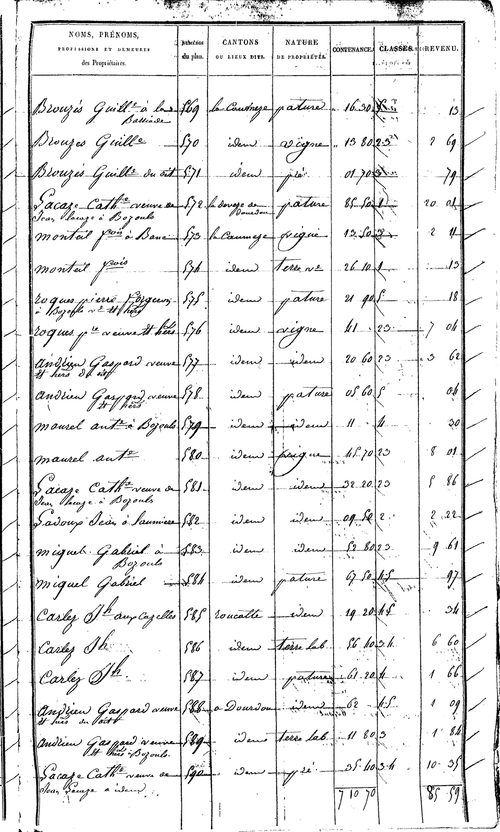 NOMS, PRÉNOMS, PROFESSIONS ET DEMEURES des Propriétaires. NUMÉROS du plan. CANTONS OU LIEUX DITS. NATURE DE PROPRIÉTÉS. CONTENANCE. CLASSES. REVENU.
Brouzès Guill.e à la 569 la Caumeze pature " 16 30 13
Brouzès Guill.e 570 idem vigne " 13 80 23 2 69
Brouzès Guill.e du dit 571 idem pré " 01 70 3 79
Lacaze Cath.e veuve de 572 pature 85 50 1 20 01
Jean Lacaze à Bozouls
monteil f.ois à Banc 573 la Caumeze vigne 12 50 3 2 11
monteil f.ois 574 idem terre v.e 26 10 1 13
roques pierre 575 idem pature 21 90 5 18
à Bozouls v.e et hérs
roques p.re veuve et hérs 576 idem vigne 41 23 7 04
andrieu Gaspard veuve 577 idem idem 20 60 23 3 62
et hérs du dit
andrieu Gaspard veuve 578 idem pature 05 60 5 04
et hérs
maurel ant.e à Bozouls 579 idem idem 11 4 30
maurel ant.e 580 idem vigne 45 70 23 8 01
Lacaze Cath.e veuve de 581 idem idem 32 20 23 5 86
Jean Lacaze à Bozouls
Ladous Jean à 582 idem idem 09 50 2 2 22
miquel Gabriel à 583 idem idem 52 80 23 9 61
Bozouls
miquel Gabriel 584 idem pature 67 50 45 97
Carles Jh aux Cazelles 585 roucotte idem 19 20 45 34
Carles Jh 586 idem terre lab. 56 40 34 6 60
Carles Jh 587 idem pature 61 20 4 1 66
andrieu Gaspard veuve 588 a Dourdou idem 62 45 1 09
et hérs du dit
andrieu Gaspard veuve 589 idem terre lab. 11 80 3 1 84
et hérs Bozouls
Lacaze Cath.e veuve de 590 idem pré 35 40 34 10 35
Jean Lacaze a idem
7 10 70 85 59